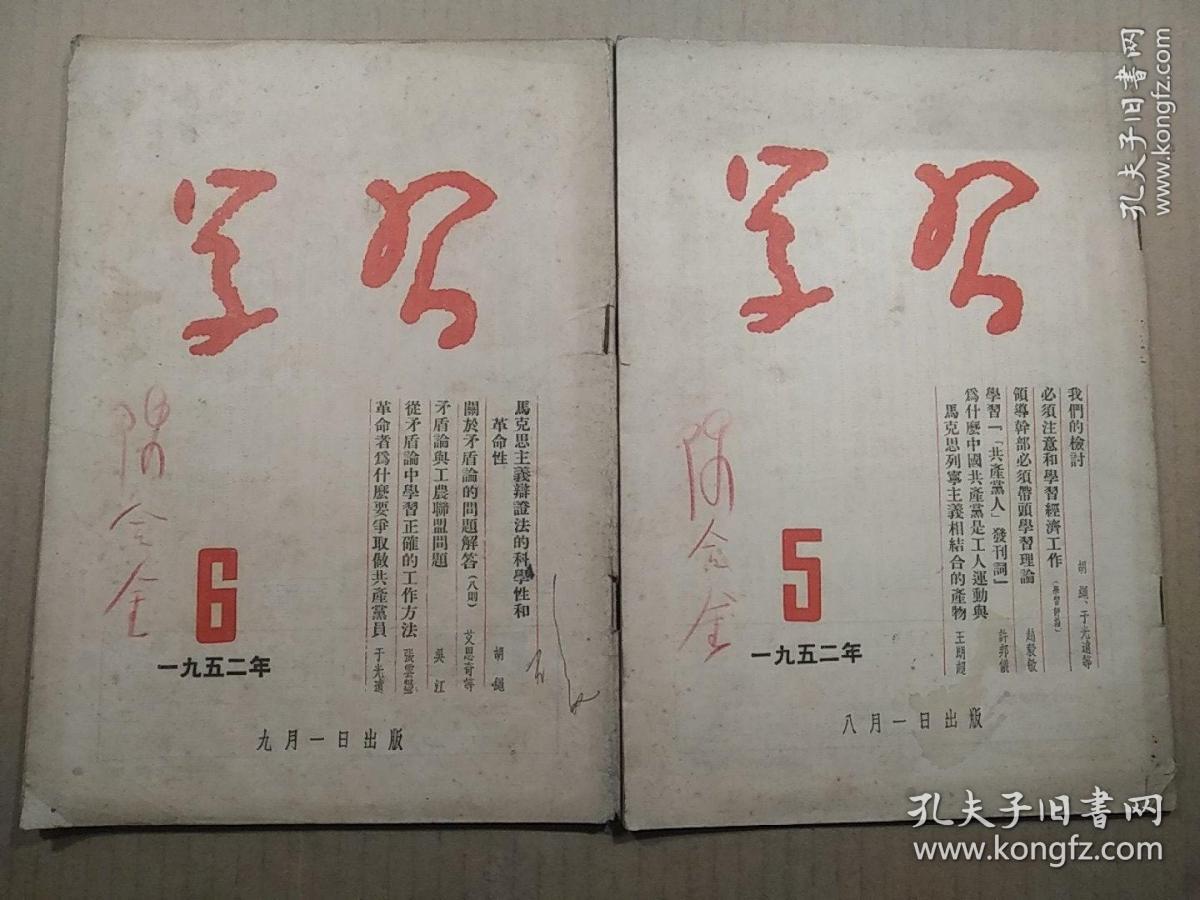 学习
馬克思主義辯證法的科學性和
革命性
胡繩
關於矛盾論的問題解答(八則)
艾思奇等
矛盾論與工農聯盟問題
吳江
從矛盾論中學習正確的工作方法
革命者爲什麽要爭取做共產黨員
于光遠
6
一九五二年
九月一日出版
学习
我們的檢討
胡繩、于光遠等
必須注意和學習經濟工作
(學習評論)
領導幹部必須帶頭學習理論
趙毅敏
學習「「共產黨人」發刊詞」
許邦儀
爲什麽中國共產黨是工人運動與
馬克思列寧主義相結合的產物
王朗超
5
一九五二年
八月一日出版
孔夫子旧书网
www.kongfz.com
孔夫子旧书网
www.kongfz.com